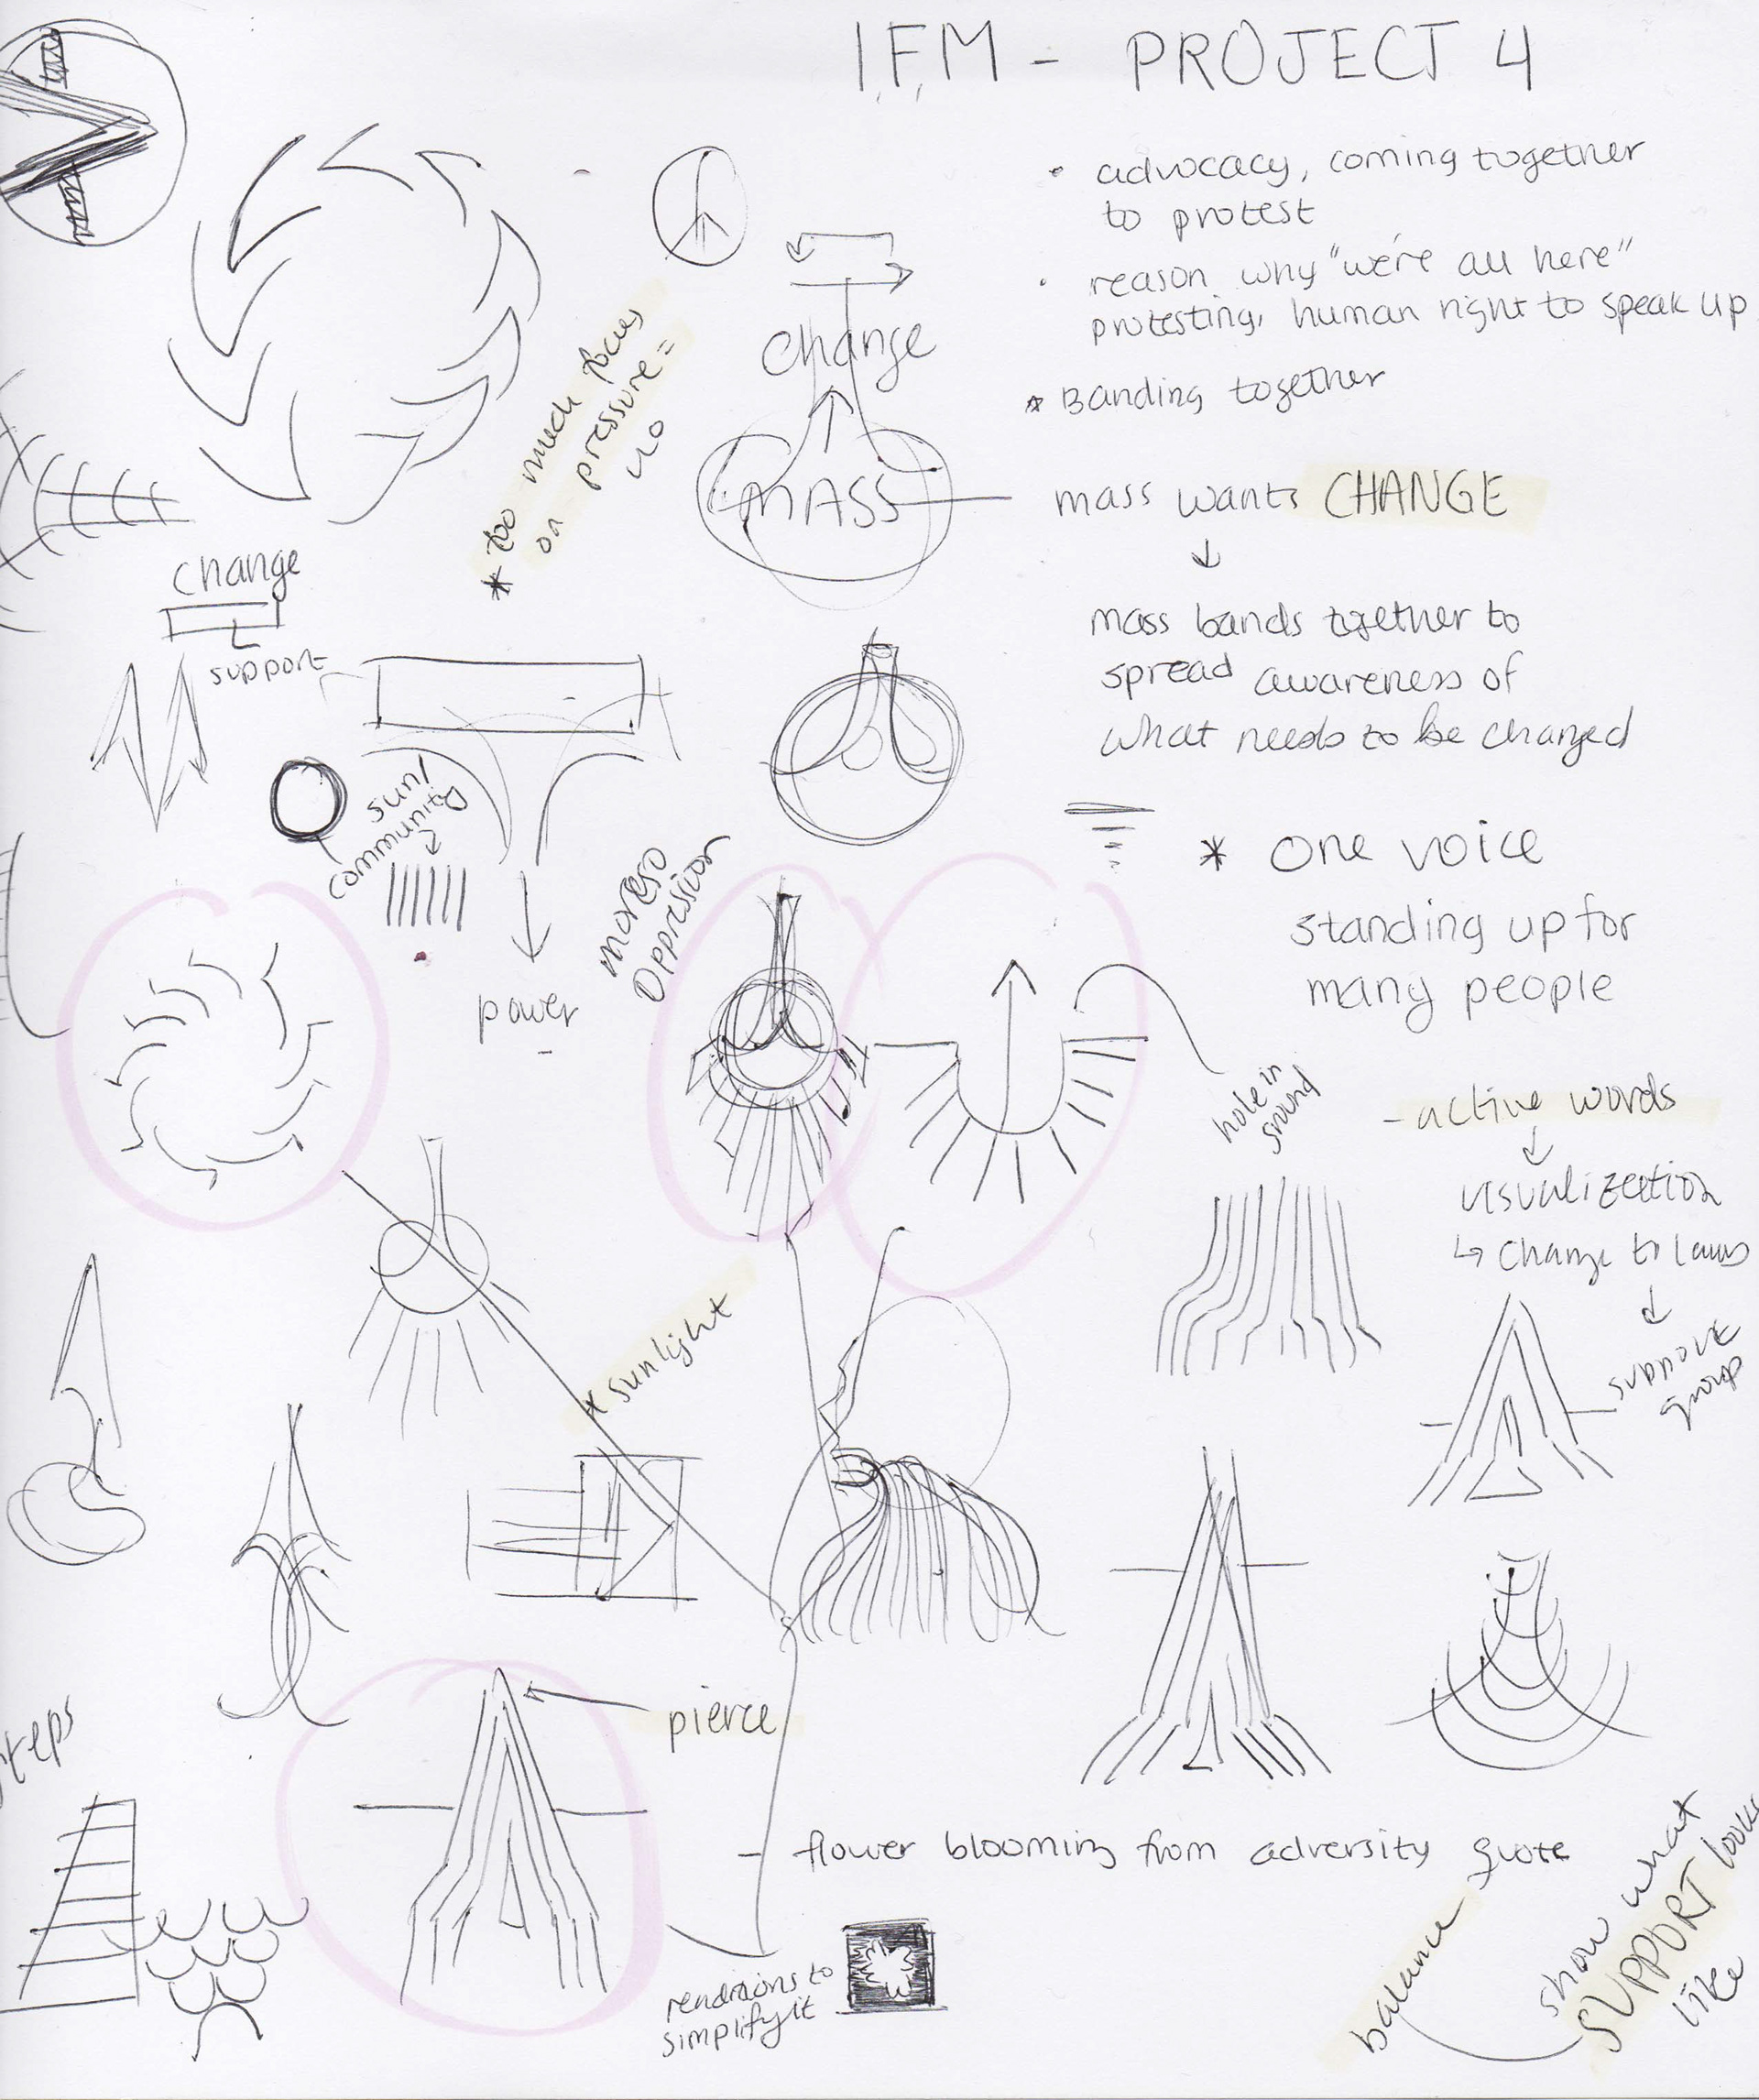 I.F.M - PROJECT 4
• advocacy, coming together
to protest
• reason why "we're all here"
protesting, human right to speak up
* Banding together
change
* too much focus
on pressure =
no
MASS
mass wants CHANGE
↓
mass bands together to
spread awareness of
what needs to be changed
change
support
sun/
community
community
power
moreso
oppression
* one voice
standing up for
many people
hole in
ground
- active words
↓
visualization
↳ change to laws
↓
support
group
* sunlight
pierce
steps
- flower blooming from adversity quote
renditions to
simplify it
balance
show what
SUPPORT looks
like